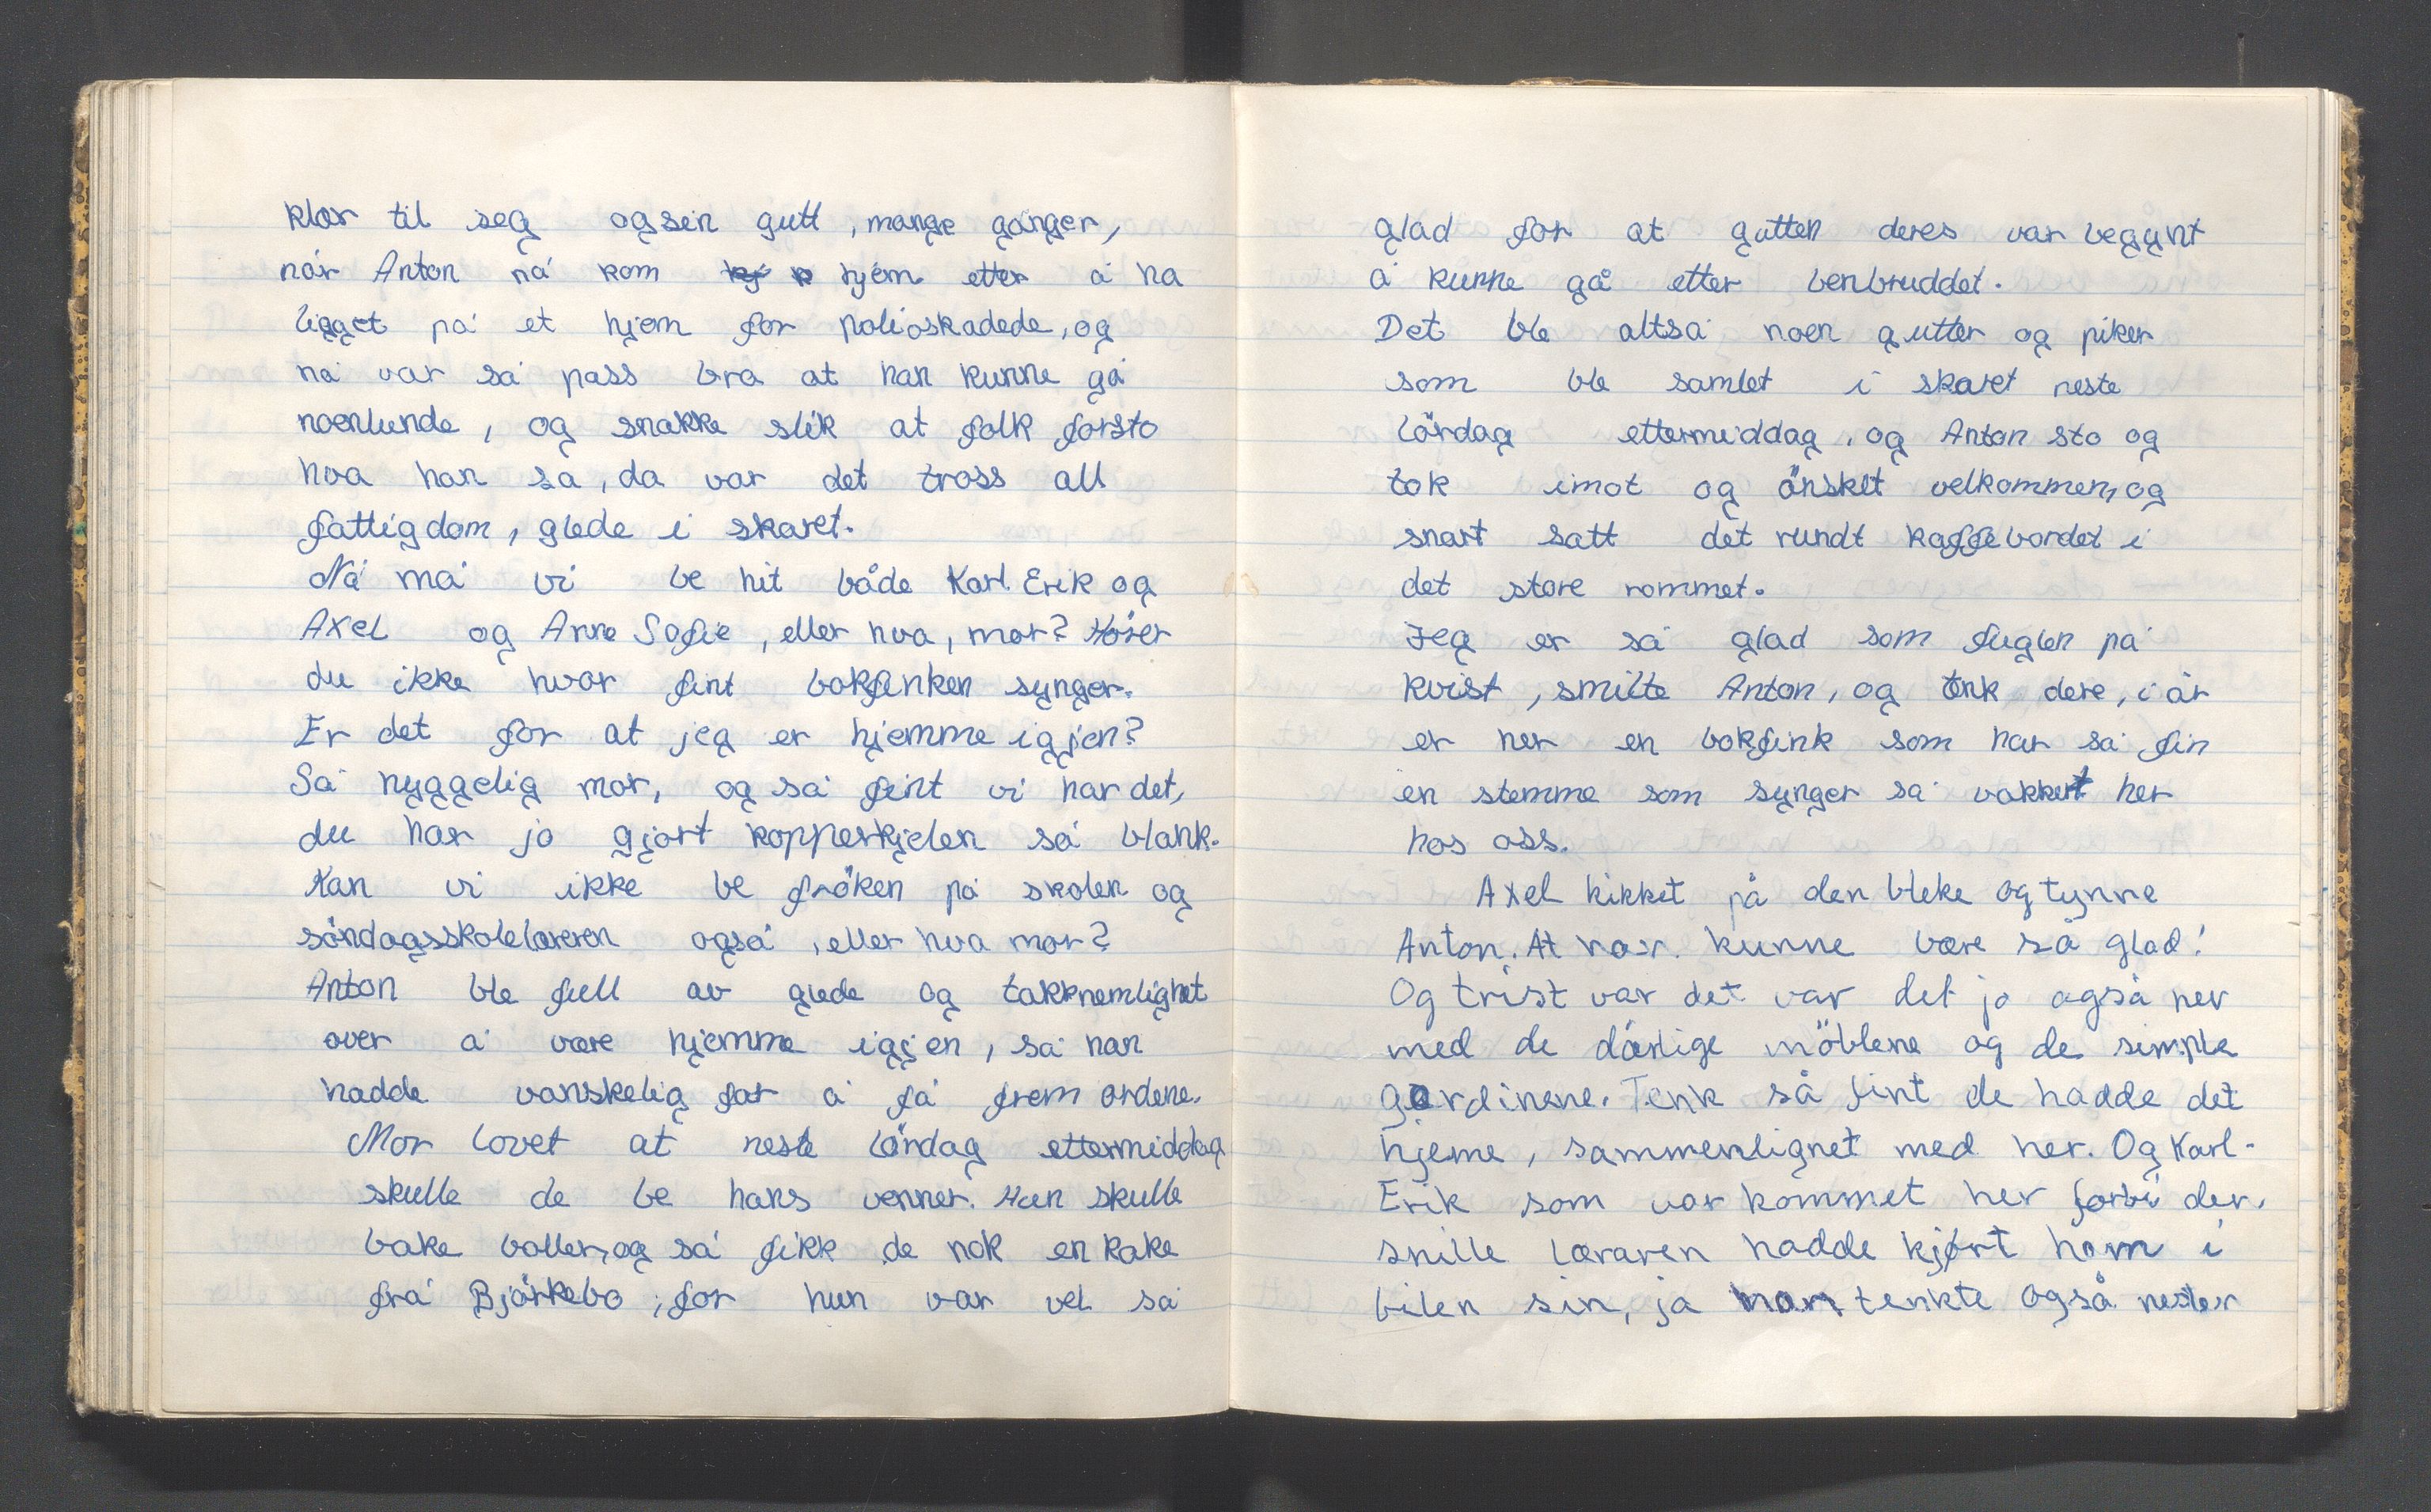 klær til seg og sin gutt, mange ganger,
når Anton nå kom hjem etter å ha
ligget på et hjem for polioskadede, og
nå var så pass bra at han kunne gå
noenlunde, og snakke slik at folk forsto
hva han sa, da var det tross all
fattigdom, glede i skaret.
Nå må vi be hit både Karl Erik og
Axel og Anne Sofie, eller hva, mor? Hører
du ikke hvor fint bokfinken synger.
Er det for at jeg er hjemme igjen?
Så hyggelig mor, og så fint vi har det,
du har jo gjort kopperkjelen så blank.
Kan vi ikke be fröken på skolen og
söndagsskolelæreren også, eller hva mor?
Anton ble full av glede og takknemlighet
over å være hjemme igjen, så han
hadde vanskelig for å få frem ordene.
Mor lovet at neste lördag ettermiddag
skulle de be hans venner. Hun skulle
bake boller, og så fikk de nok en kake
fra Björkebo, for hun var vel så
glad for at gutten deres var begynt
å kunne gå etter benbruddet.
Det ble altså noen gutter og piker
som ble samlet i skaret neste
Lördag ettermiddag, og Anton sto og
tok imot og önsket velkommen, og
snart satt det rundt kaffebordet i
det store rommet.
Jeg er så glad som fuglen på
kvist, smilte Anton, og tenk dere, i år
er her en bokfink som har så fin
en stemme som synger så vakkert her
hos oss.
Axel kikket på den bleke og tynne
Anton. At han kunne være så glad!
Og trist var det var det jo også her
med de dårlige möblene og de simple
gardinene. Tenk så fint de hadde det
hjeme, sammenlignet med her. Og Karl-
Erik som var kommet her forbi den
snille læraren hadde kjørt ham i
bilen sin, ja han tenkte også nesten